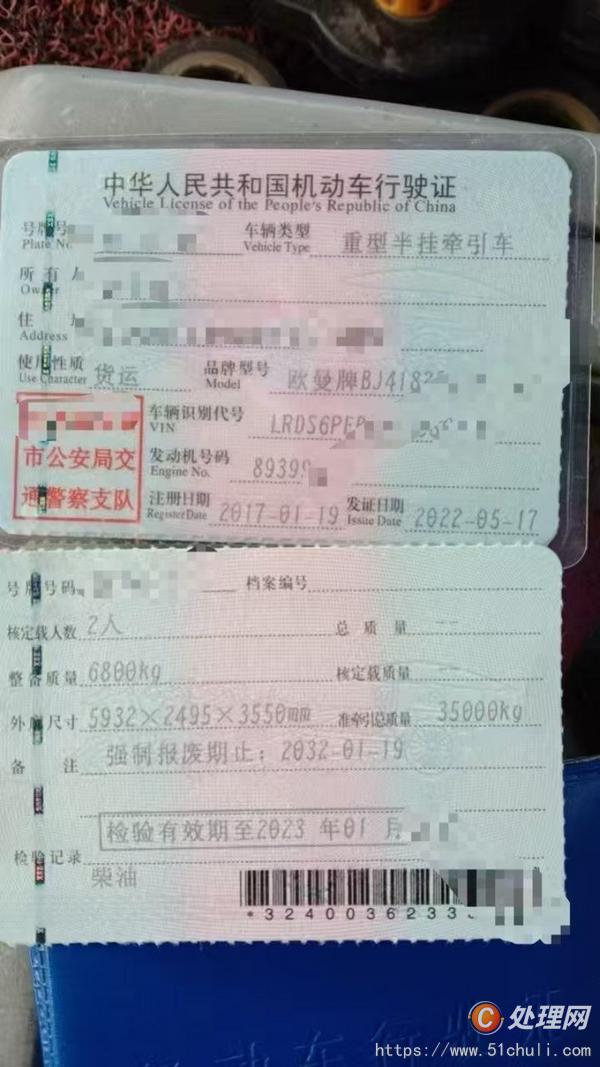 中华人民共和国机动车行驶证
Vehicle License of the People's Republic of China
号牌号
Plate No.
车辆类型
Vehicle Type
重型半挂牵引车
所有人
Owner
住
Address
使用性质
Use Character
货运
品牌型号
Model
欧曼牌BJ418
市公安局交
通警察支队
车辆识别代号
VIN
LRDS6PE
发动机号码
Engine No.
8939
注册日期
Register Date
2017-01-19
发证日期
Issue Date
2022-05-17
号牌号码
档案编号
核定载人数
2人
总质量
--
整备质量
6800kg
核定载质量
--
外廓尺寸
5932×2495×3550mm
准牵引总质量
35000kg
备注
强制报废期止：2032-01-19
检验有效期至2023 年01 月
检验记录
柴油
*3240036233
C 处理网
https://www.51chuli.com